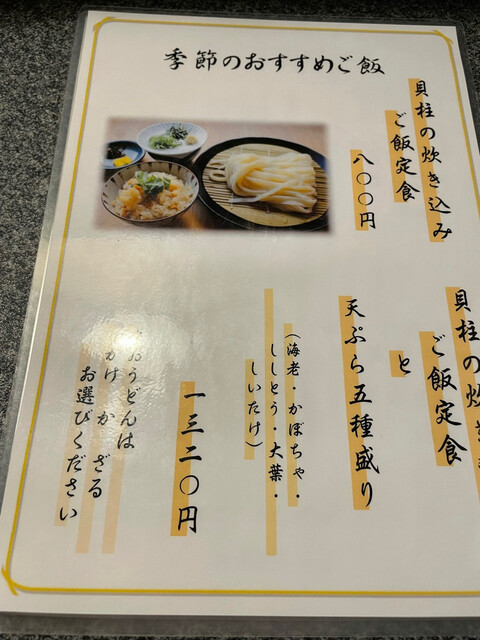 季節のおすすめご飯
貝柱の炊き込み
ご飯定食
八〇〇円
貝柱の炊
ご飯定食
と
天ぷら五種盛り
（海老・かぼちゃ・
ししとう・大葉・
しいたけ）
一三二〇円
おうどんは
かけ か ざる
お選びください